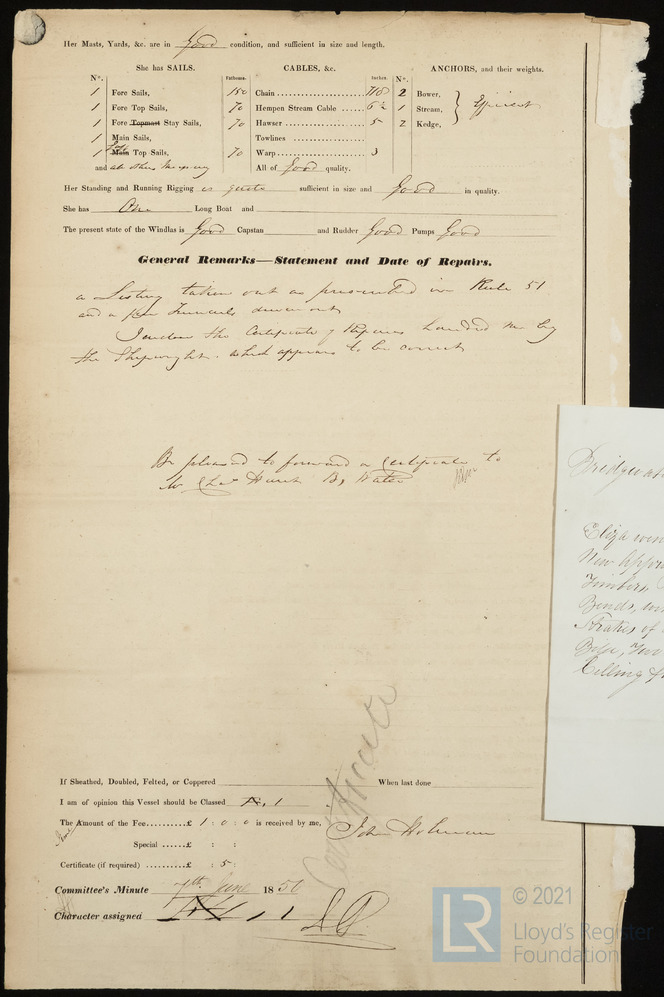 Her Masts, Yards, &c. are in Good condition, and sufficient in size and length.
She has SAILS.
CABLES, &c.
ANCHORS, and their weights.
N°. Fathoms. Inches. N°.
1 Fore Sails, 150 Chain 7/8 2 Bower,
1 Fore Top Sails, 70 Hempen Stream Cable 6½ 1 Stream, Efficient
1 Fore Topmast Stay Sails, 70 Hawser 5 2 Kedge,
1 Main Sails, Towlines
1 Main Top Sails, 70 Warp 3
and all others All of Good quality.
Her Standing and Running Rigging is quite sufficient in size and Good in quality.
She has One Long Boat and
The present state of the Windlas is Good Capstan and Rudder Good Pumps Good
General Remarks—Statement and Date of Repairs.
a Listing taken out as prescribed in Rule 51
and a few Treenails driven out
I enclose the Certificate of Repairs handed me by
the Shipwright which appears to be correct
Be pleased to forward a Certificate to
Mr Chas Hunt B, Water
Bridgwat
Eliza
New
Timbers,
Bends,
Strakes of
Bilge, Two
Ceiling
Certificate
If Sheathed, Doubled, Felted, or Coppered When last done
I am of opinion this Vessel should be Classed Æ, 1
The Amount of the Fee £ 1 : 0 : 0 is received by me, John Holman
Special £ : :
Certificate (if required) £ : 5 :
Committee's Minute 7th June 1850
Character assigned 1
LR
© 2021
Lloyd's Register
Foundation